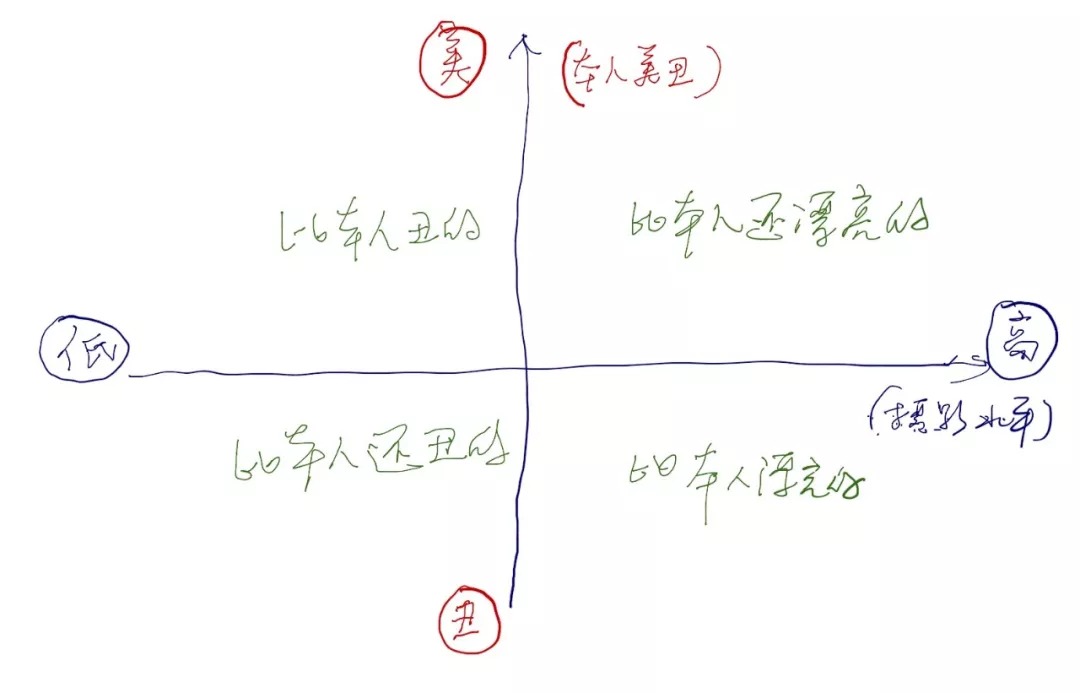 美 (本人美丑)
比本人丑的
比本人还漂亮的
低
高
(摄影水平)
比本人还丑的
比本人漂亮的
丑